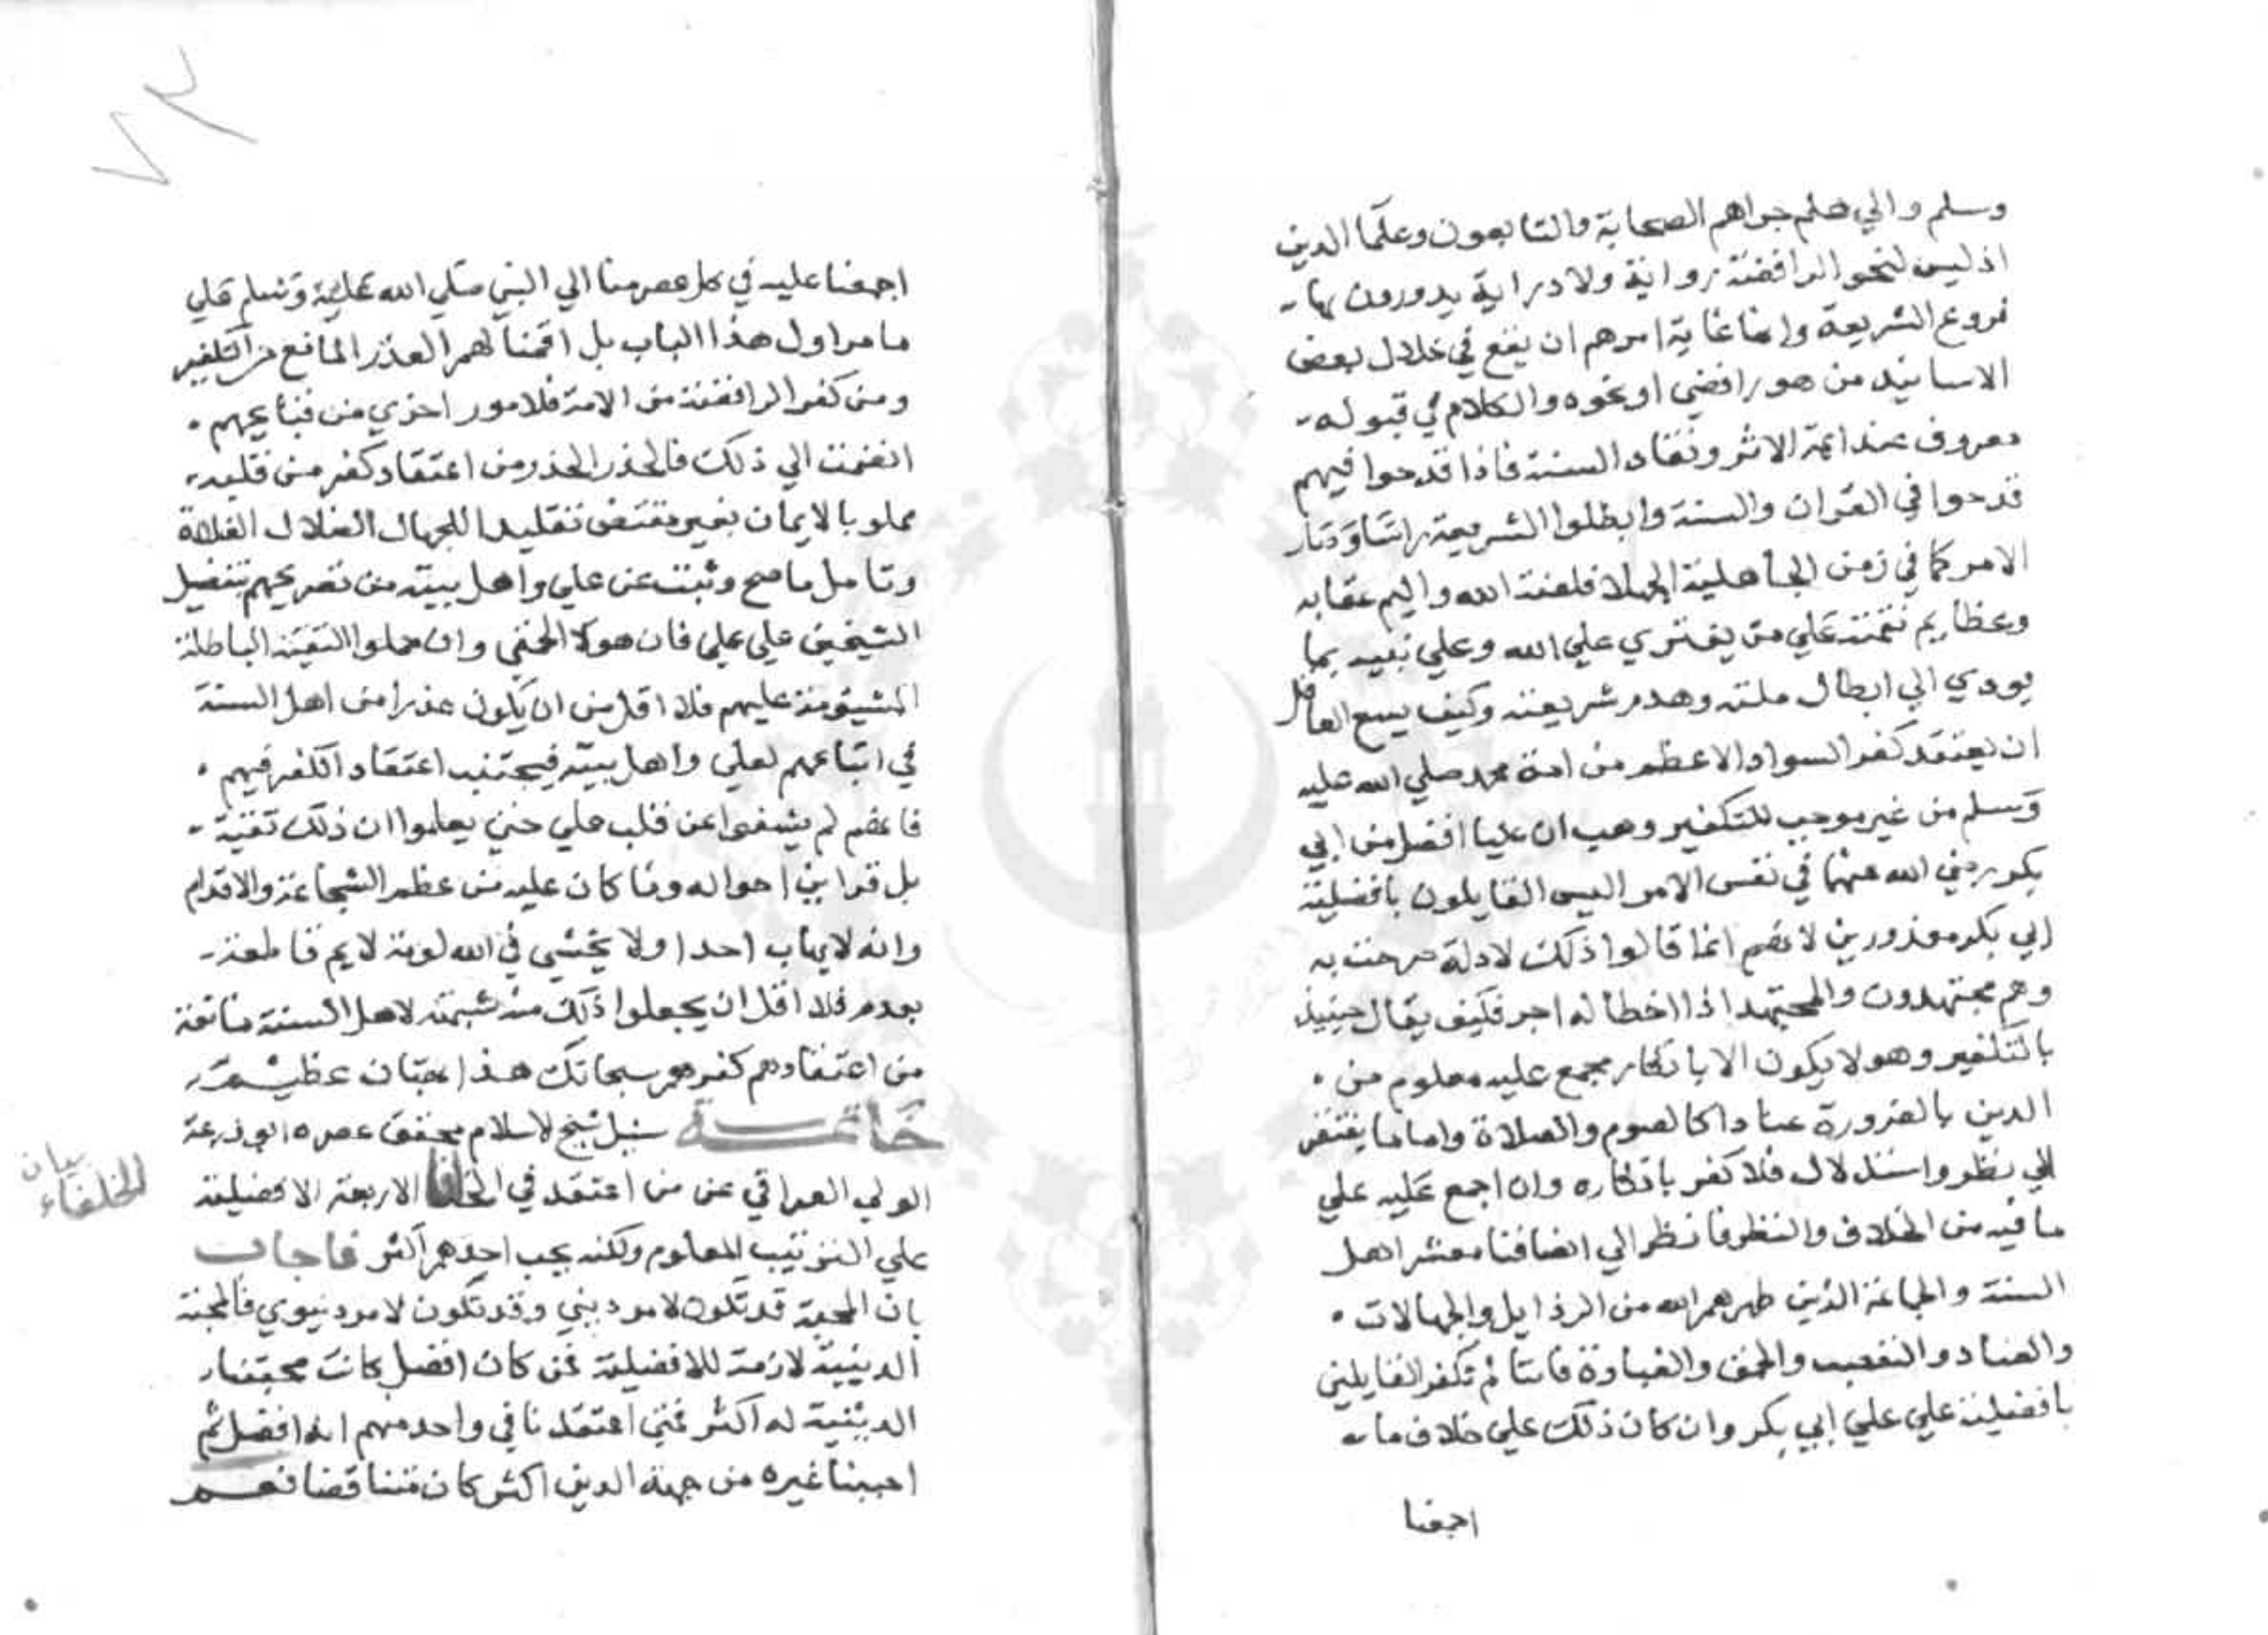 وسلم والي هلم جراهم الصحابة والتابعون وعلما الدين
اذ ليس لنحو الرافضة رواية ولا دراية يدورون بها
فروع الشريعة وانما غاية امرهم ان يقع في خلال بعض
الاسانيد من هو رافضي او نحوه والكلام في قبوله
معروف عند ايمة الاثر ونقاد السنة فاذا قدحوا فيهم
قدحوا في القران والسنة وابطلوا الشريعة راسا وصار
الامر كما في زمن الجاهلية الجهلا فلعنة الله واليم عقابه
وعظايم نقمته علي من يفتري علي الله وعلي نبيه بما
يودي الي ابطال ملته وهدم شريعته وكيف يسع العاقل
ان يعتقد كفر السواد الاعظم من امة محمد صلي الله عليه
وسلم من غير موجب للتكفير وهب ان عليا افضل من ابي
بكر رضي الله عنهما في نفس الامر اليس القايلون بافضلية
ابي بكر معذورين لانهم انما قالوا ذلك لادلة صرحت به
وهم مجتهدون والمجتهد اذا اخطا له اجر فكيف يقال حينيذ
بالتكفير وهو لا يكون الا بانكار مجمع عليه معلوم من
الدين بالضرورة عنادا كالصوم والصلاة واما ما يفتقر
الي نظر واستدلال فلا كفر بانكاره وان اجمع عليه علي
ما فيه من الخلاف والنظر فانظر الي انصافنا معشر اهل
السنة والجماعة الذين طهرهم الله من الرذايل والجهالات
والعناد والتعصب والحمق والغباوة فاننا لم نكفر القايلين
بافضلية علي علي ابي بكر وان كان ذلك علي خلاف ما
اجمعنا
٧٣
اجمعنا عليه في كل عصر منا الي النبي صلي الله عليه وسلم علي
ما مر اول هذا الباب بل اقمنا لهم العذر المانع من التكفير
ومن كفر الرافضة من الامة فلامور اخري من قبايحهم
انضمت الي ذلك فالحذر الحذر من اعتقاد كفر من قلبه
مملو بالايمان بغير مقتض تقليدا للجهال الضلال الغلاة
وتامل ما صح وثبت عن علي واهل بيته من تصريحهم بتفضيل
الشيخين علي علي فان هولا الحمقي وان حملوا التقية الباطلة
المشئومة عليهم فلا اقل من ان يكون عذرا من اهل السنة
في اتباعهم لعلي واهل بيته فيجتنب اعتقاد الكفر فيهم
فانهم لم يشقوا عن قلب علي حتي يعلموا ان ذلك تقية
بل قراين احواله وما كان عليه من عظم الشجاعة والاقدام
وانه لا يهاب احدا ولا يخشي في الله لومة لايم قاطعة
بعدم فلا اقل ان يجعلوا ذلك منه شبهة لاهل السنة مانعة
من اعتقادهم كفرهم سبحانك هذا بهتان عظيم
خاتمة سيل شيخ الاسلام محقق عصره ابو زرعة
الولي العراقي عن من اعتقد في الخلفا الاربعة الافضلية
علي الترتيب المعلوم ولكنه يحب احدهم اكثر فاجاب
بان المحبة قد تكون لامر ديني وقد تكون لامر دنيوي فالمحبة
الدينية لازمة للافضلية فمن كان افضل كانت محبتنا
الدينية له اكثر فمتي اعتقدنا في واحد منهم انه افضل ثم
احببنا غيره من جهة الدين اكثر كان متناقضا نعم
بيان
الخلفاء